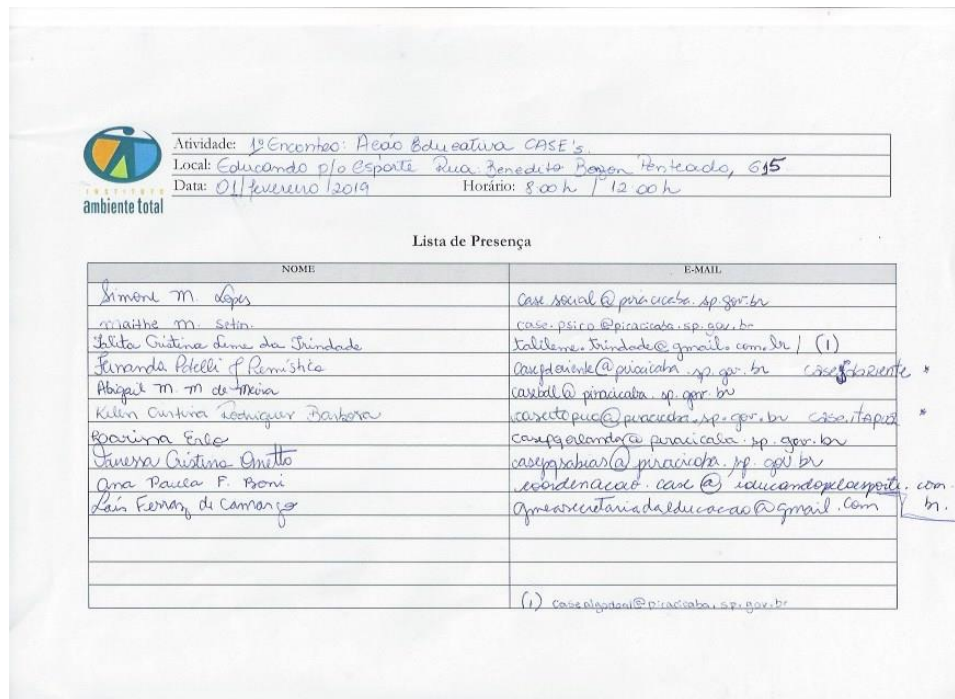 INSTITUTO
ambiente total
Atividade: 1º Encontro: Ação Educativa CASE's
Local: Educando p/o Esporte Rua Benedito Bonzon Penteado, 615
Data: 01/fevereiro/2019 Horário: 8:00 h / 12:00 h
Lista de Presença
NOME E-MAIL
Simone M. Lopes case.social@piracicaba.sp.gov.br
Maithe M. Setin. case.psico@piracicaba.sp.gov.br
Talita Cristina Leme da Trindade talileme.trindade@gmail.com.br / (1)
Fernanda casejdoriente@piracicaba.sp.gov.br *
Abigail M. M de Meira casebdl@piracicaba.sp.gov.br
Kelen Cristina Rodrigues Barbosa caseitapua@piracicaba.sp.gov.br case.itapuã *
casepqorlando@piracicaba.sp.gov.br
Vanessa Cristina casepqsabias@piracicaba.sp.gov.br
Ana Paula F. Boni coordenacao.case@educandopeloesporte.com.br.
Laís Ferraz de Camargo @gmail.com
(1) casealgodoal@piracicaba.sp.gov.br